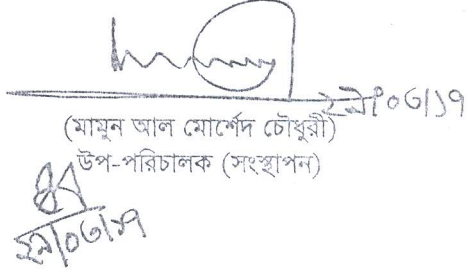 ২৯/০৩/১৭
(মামুন আল মোর্শেদ চৌধুরী)
উপ-পরিচালক (সংস্থাপন)
২৯/০৩/১৭